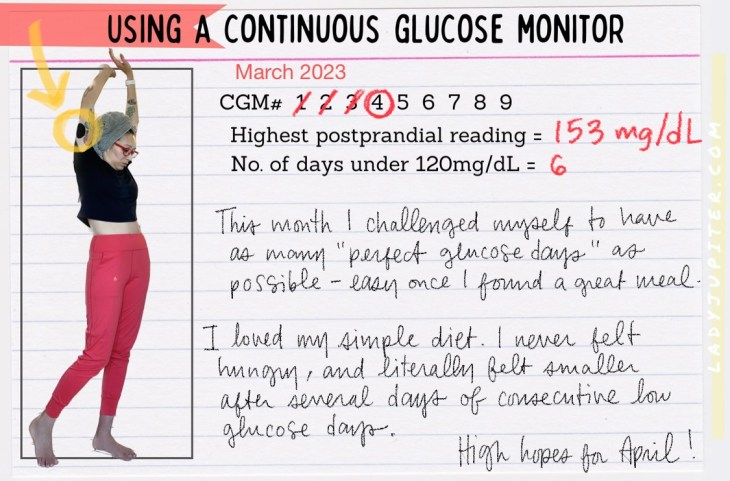 USING A CONTINUOUS GLUCOSE MONITOR
March 2023
CGM# 1 2 3 4 5 6 7 8 9
Highest postprandial reading = 153 mg/dL
No. of days under 120mg/dL = 6
This month I challenged myself to have
as many "perfect glucose days" as
possible - easy once I found a great meal.
I loved my simple diet. I never felt
hungry, and literally felt smaller
after several days of consecutive low
glucose days.
High hopes for April!
LADYJUPITER.COM